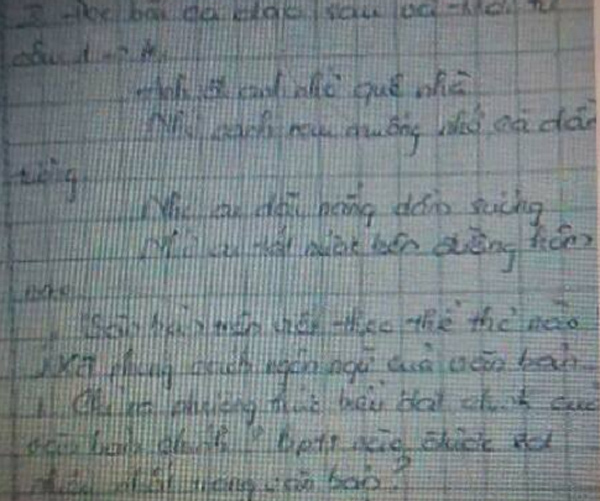 Đọc bài ca dao sau và
câu 1 → 4.
Anh đi anh nhớ quê nhà
Nhớ canh rau muống nhớ cà dầm
tương
Nhớ ai dãi nắng dầm sương
Nhớ ai tát nước bên đường hôm
nao
văn bản trên viết theo thể thơ nào
phong cách ngôn ngữ của văn bản
phương thức biểu đạt chính của
văn bản chính? bptt nào được
nhất trong văn bản?